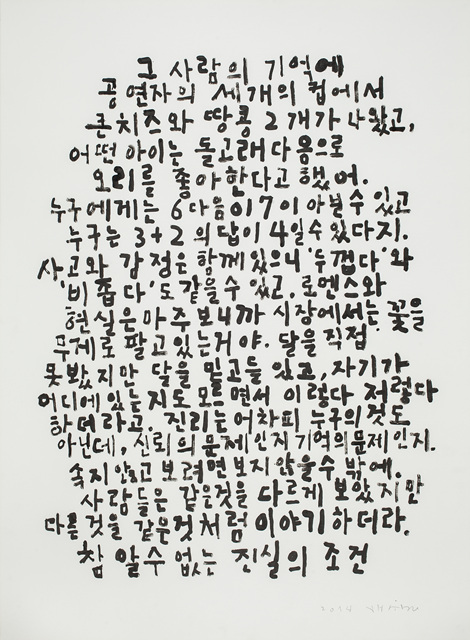 그 사람의 기억에
공연자의 세개의 컵에서
큰치즈와 땅콩 2개가 나왔고,
어떤 아이는 돌고래 다음으로
오리를 좋아한다고 했어.
누구에게는 6다음이 7이 아닐수 있고
누구는 3+2 의 답이 4일수 있다지.
사고와 감정은 함께 있으니 '두껍다'와
'비좁다'도 같을수 있고. 로멘스와
현실은 마주보니까 시장에서는 꽃을
무게로 팔고 있는거야. 달을 직접
못봤지만 달을 믿고들 있고, 자기가
어디에 있는지도 모르면서 이렇다 저렇다
하더라고. 진리는 어차피 누구의 것도
아닌데, 신뢰의 문제인지 기억의 문제인지.
속지 않고 보려면 보지 않을수 밖에.
사람들은 같은것을 다르게 보았지만
다른 것을 같은것처럼 이야기 하더라.
참 알수없는 진실의 조건
2014